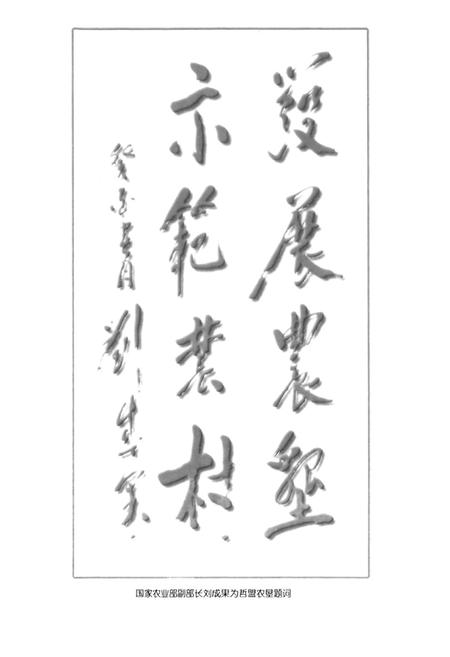 發展農墾
示範農村
劉成果
国家农业部副部长刘成果为哲盟农垦题词